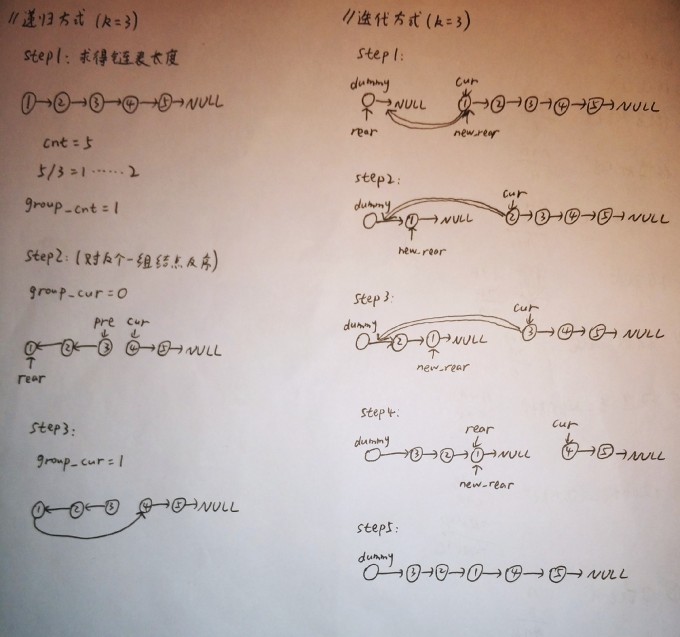 //递归方式(k=3)
step1: 求得链表长度
①→②→③→④→⑤→NULL
cnt = 5
5/3=1……2
group_cnt=1
step2:(对k个一组结点反序)
group_cur=0
pre cur
①←②←③ ④→⑤→NULL
rear
step3:
group_cur=1
①←②←③ ④→⑤→NULL
//迭代方式(k=3)
step1:
dummy cur
○→NULL ①→②→③→④→⑤→NULL
rear new_rear
step2:
dummy cur
○→①→NULL ②→③→④→⑤→NULL
new_rear
step3:
dummy cur
○→②→①→NULL ③→④→⑤→NULL
new_rear
step4:
dummy rear cur
○→③→②→①→NULL ④→⑤→NULL
new_rear
step5:
dummy
○→③→②→①→④→⑤→NULL